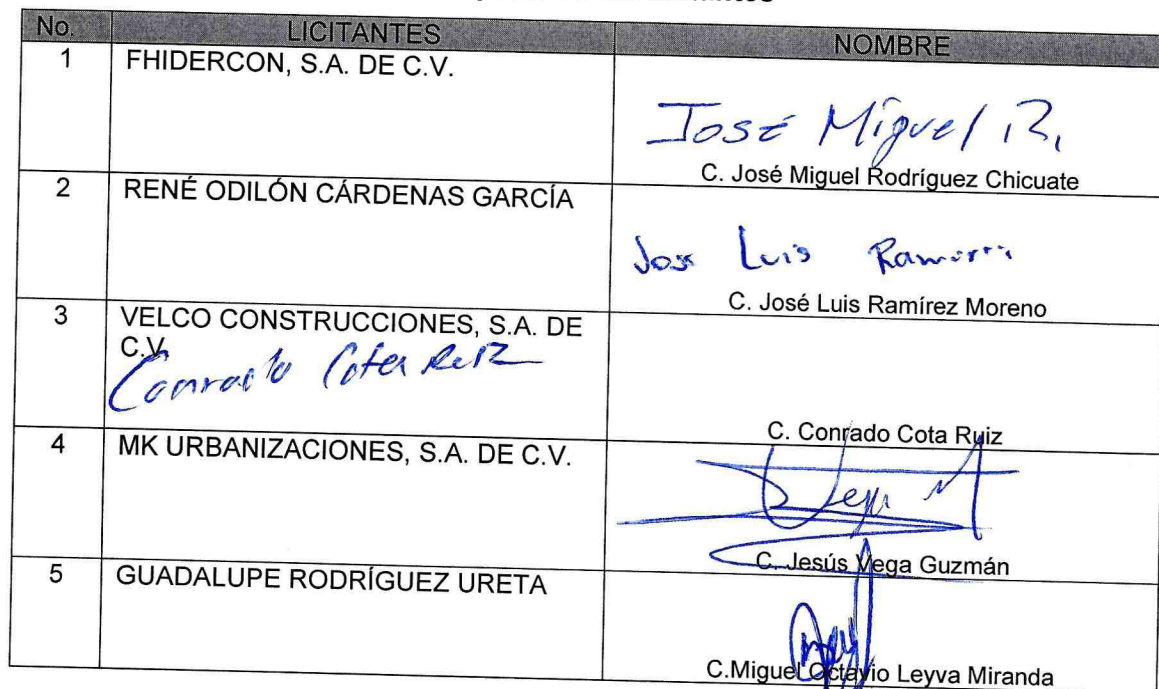 No. LICITANTES NOMBRE
1 FHIDERCON, S.A. DE C.V.
José Miguel R.
C. José Miguel Rodríguez Chicuate
2 RENÉ ODILÓN CÁRDENAS GARCÍA
Jose Luis Ramirez
C. José Luis Ramírez Moreno
3 VELCO CONSTRUCCIONES, S.A. DE
C.V.
Conrado Cota Ruiz
C. Conrado Cota Ruiz
4 MK URBANIZACIONES, S.A. DE C.V.
C. Jesús Vega Guzmán
5 GUADALUPE RODRÍGUEZ URETA
C.Miguel Octavio Leyva Miranda